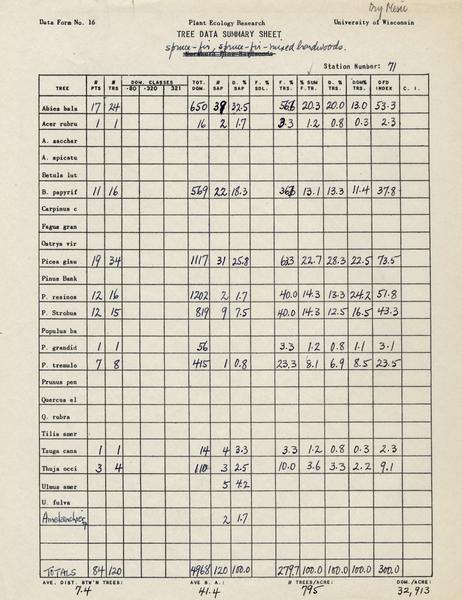 Dry Mesic
Data Form No. 16 Plant Ecology Research University of Wisconsin
TREE DATA SUMMARY SHEET
spruce-fir, spruce-fir-mixed hardwoods.
Northern Pine-Hardwoods
Station Number: 71
TREE # PTS # TRS DOM. CLASSES -80 -320 321 TOT. DOM. # SAP D. % SAP F. % SDL. F. % TRS. % SUM F.TR. D. % TRS. DOM% TRS. DFD INDEX C. I.
Abies bala 17 24 650 39 32.5 20.3 20.0 13.0 53.3
Acer rubru 1 1 16 2 1.7 3.3 1.2 0.8 0.3 2.3
A. sacchar
A. spicatu
Betula lut
B. papyrif 11 16 569 22 18.3 13.1 13.3 11.4 37.8
Carpinus c
Fagus gran
Ostrya vir
Picea glau 19 34 1117 31 25.8 63.3 22.7 28.3 22.5 73.5
Pinus Bank
P. resinos 12 16 1202 2 1.7 40.0 14.3 13.3 24.2 51.8
P. Strobus 12 15 819 9 7.5 40.0 14.3 12.5 16.5 43.3
Populus ba
P. grandid 1 1 56 3.3 1.2 0.8 1.1 3.1
P. tremulo 7 8 415 1 0.8 23.3 8.1 6.9 8.5 23.5
Prunus pen
Quercus el
Q. rubra
Tilia amer
Tsuga cana 1 1 14 4 3.3 3.3 1.2 0.8 0.3 2.3
Thuja occi 3 4 110 3 2.5 10.0 3.6 3.3 2.2 9.1
Ulmus amer 5 4.2
U. fulva
2 1.7
TOTALS 84 120 4968 120 100.0 279.7 100.0 100.0 100.0 300.0
AVE. DIST. BTW'N TREES: AVE B. A.: # TREES/ACRE: DOM./ACRE:
7.4 41.4 795 32,913